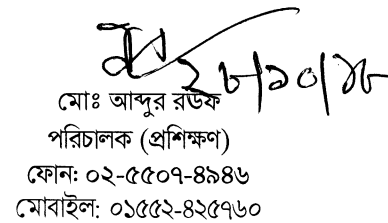 ২৮/১০/১৮
মোঃ আব্দুর রউফ
পরিচালক (প্রশিক্ষণ)
ফোন: ০২-৫৫০৭-৪৯৪৬
মোবাইল: ০১৫৫২-৪২৫৭৬০